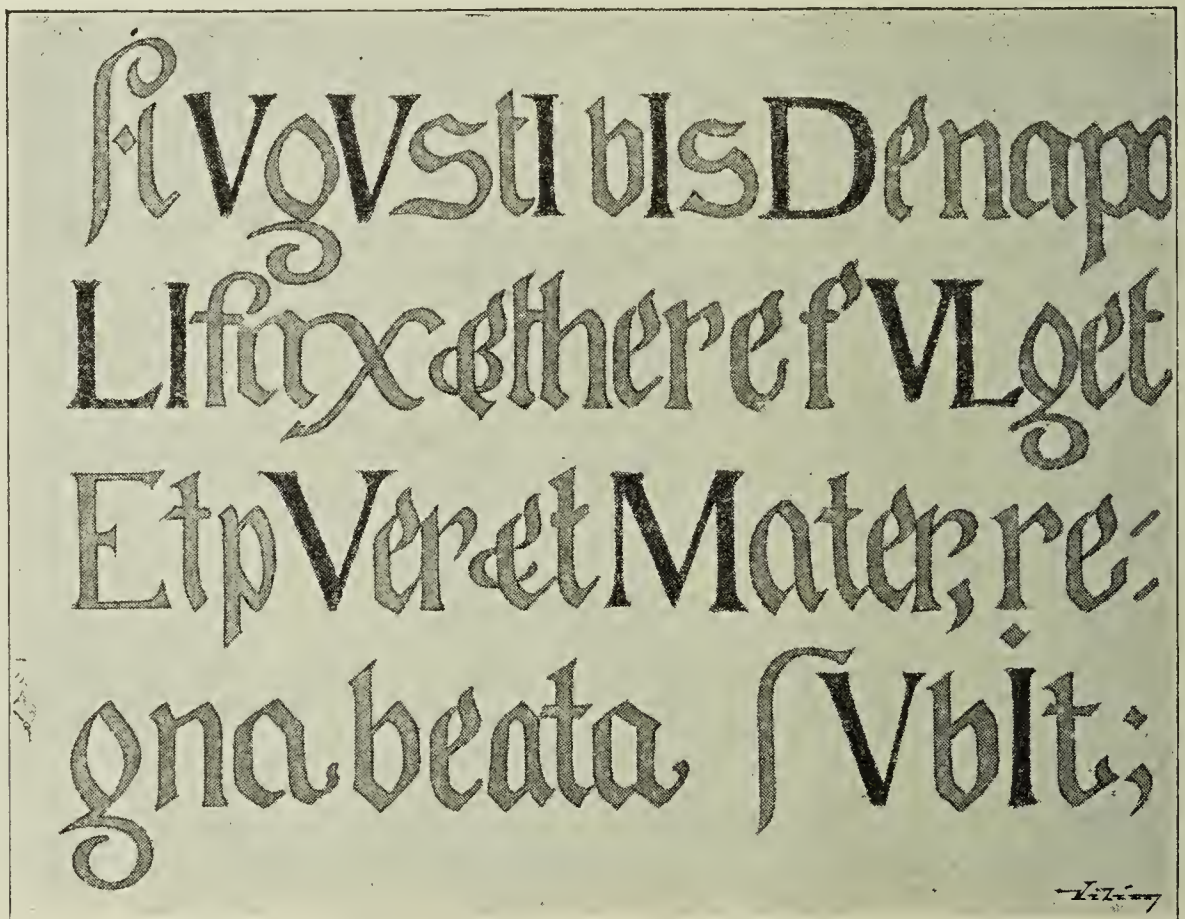 AVgVstI bIs Dena po
LI fax æthere fVLget
Et pVer et Mater, re=
gna beata ſVbIt;